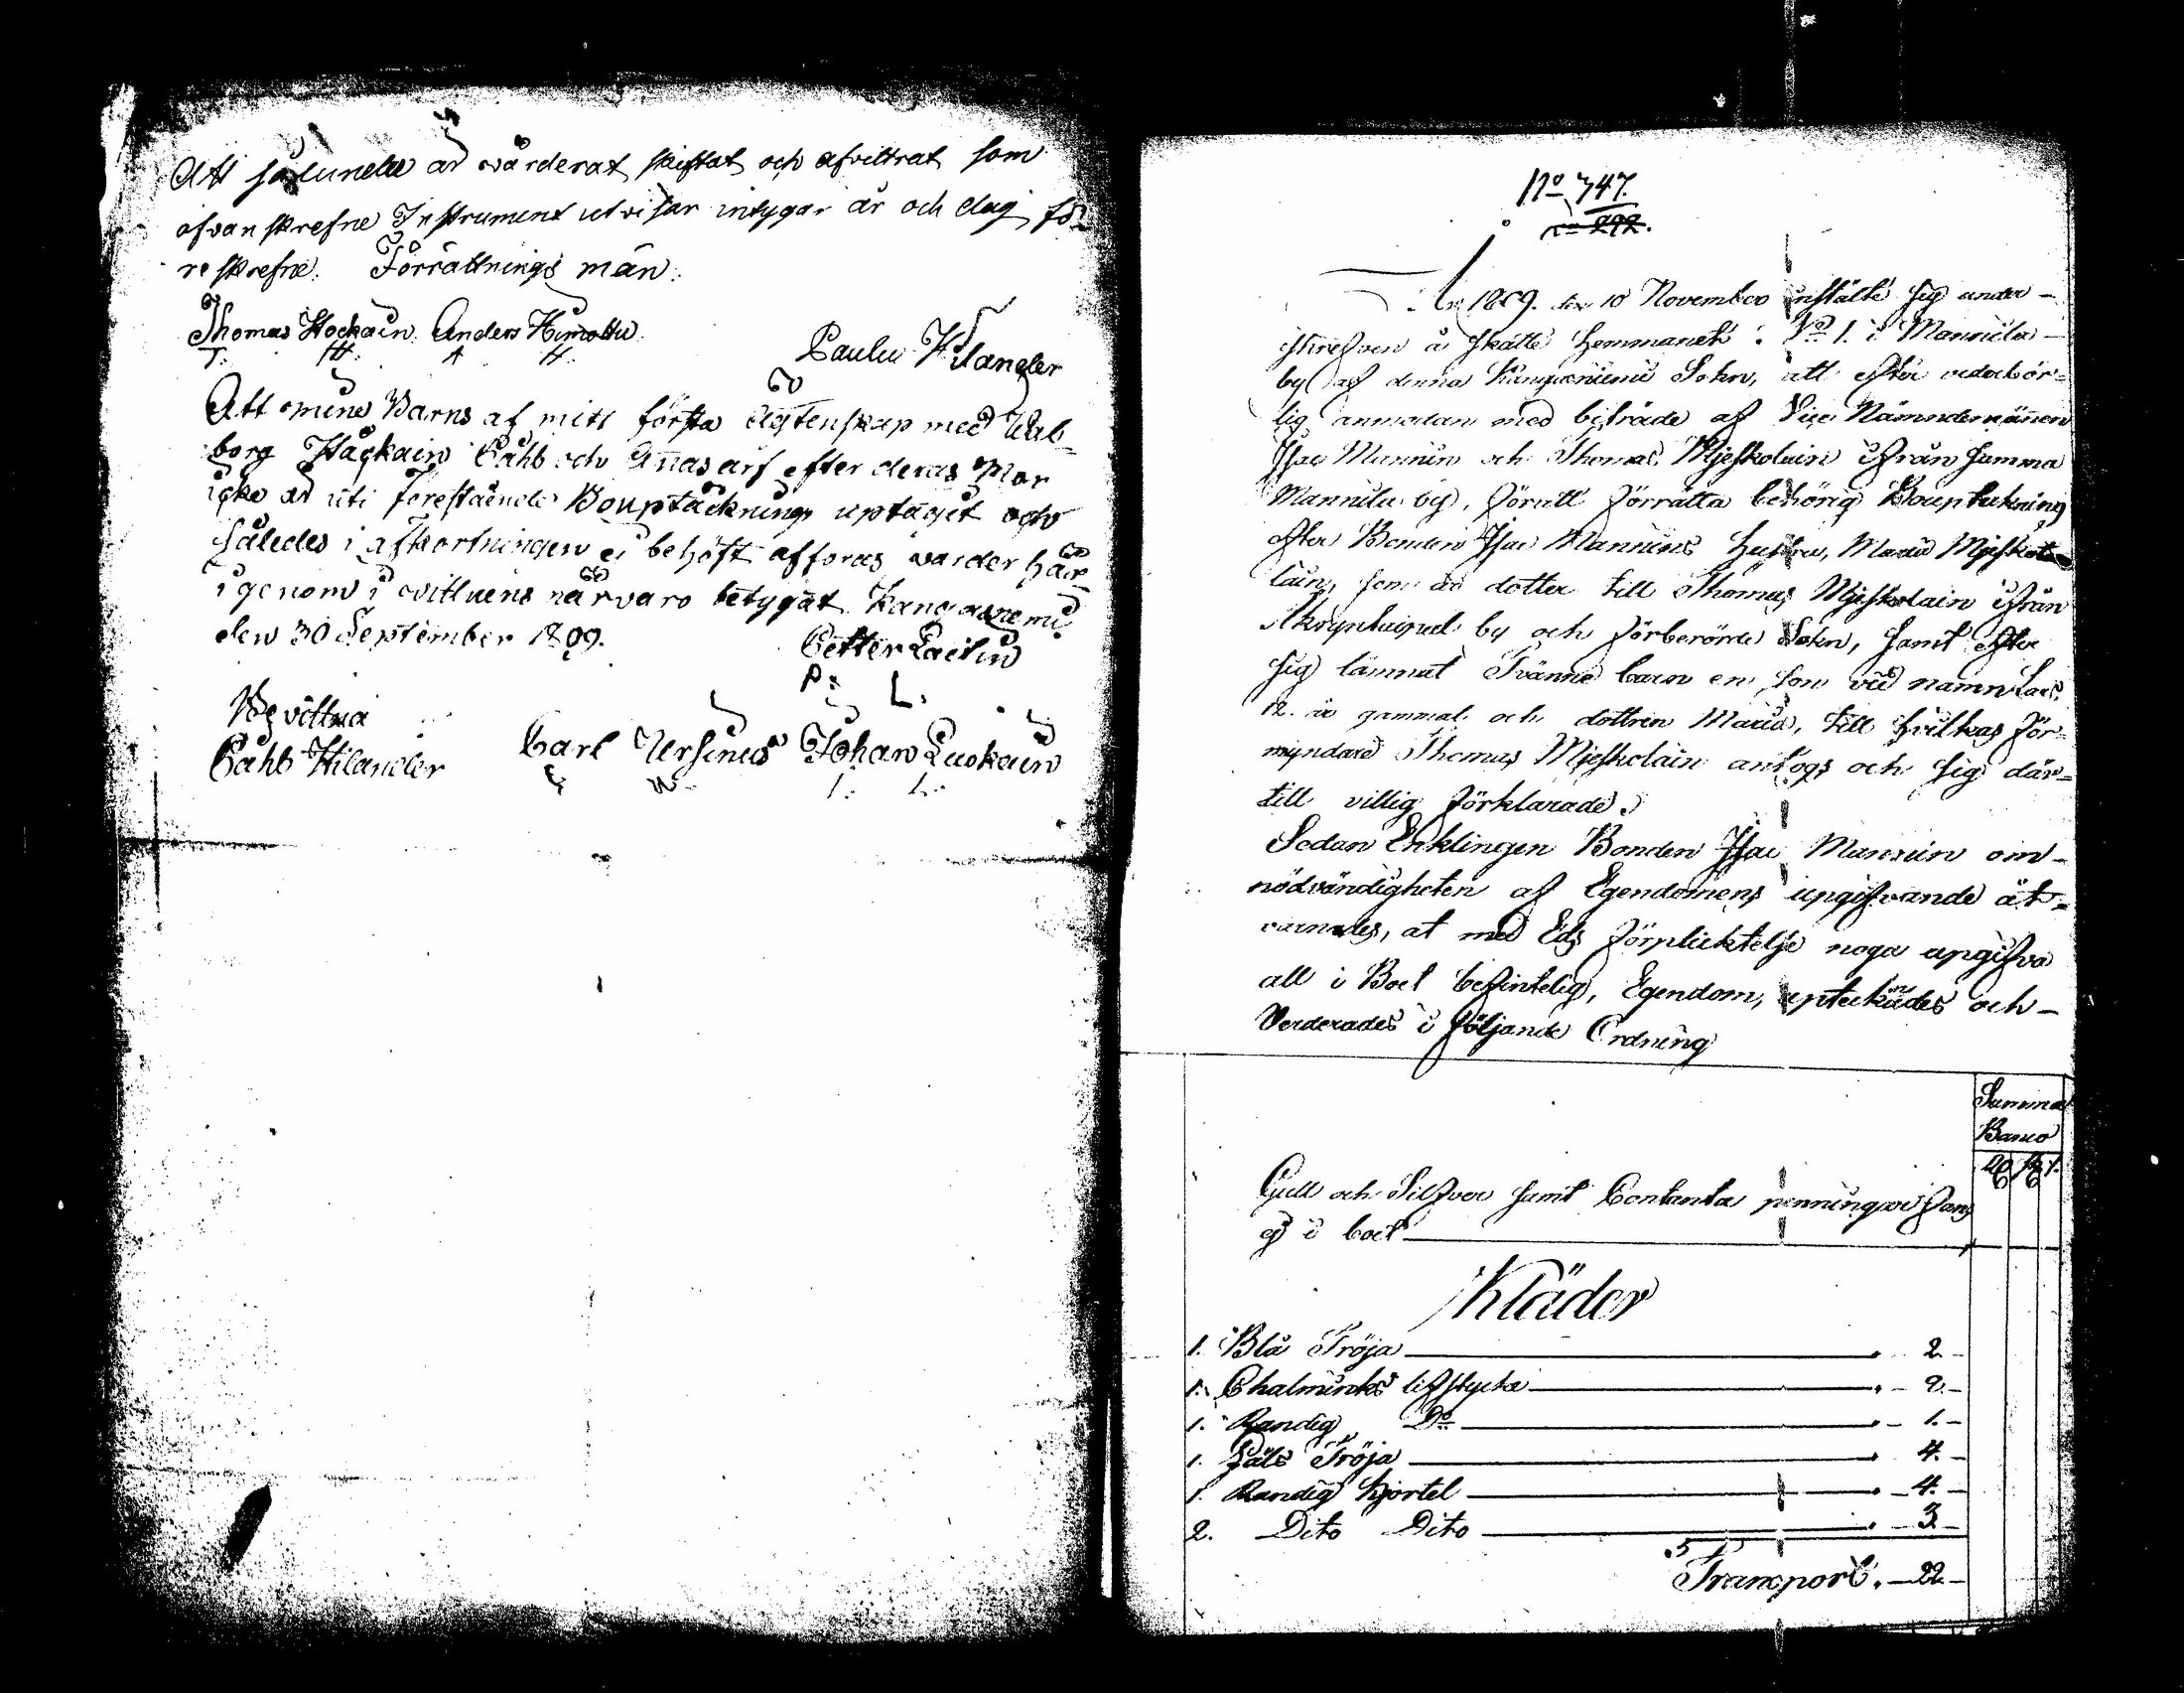 Att sålunda är wärderat skiftat och afvittrat som
ofvanskrefne Instrument utvisar intygar år och dag fö-
reskrefne. Förrättnings män.
Thomas Hockain Anders Himottu
T: H: A H:
Paulus Hilander
Att mine Barns af mitt första ägtenskap med Wal-
borg Håckain Påhl och Annas arf efter deras Mor
icke är uti förestående Bouptäcknings uptagit och
således i afkortningen ei behöft afföras warder här
igenom i vittnens närvaro betygat Kangasniemi
den 30 September 1809.
Petter Laitin
P: L:
Bevittna
Påhl Hilander Carl Ursinus Johan Luskain
C U I: L:
No 747.
År 1809. den 10 November instälte sig under-
skrefven å skatte Hemmanet No 1. i Mannila
by af denna Kangasniemi Sokn, att efter vederbör-
lig anmodan med biträde af Vice Nämndemännen
Isac Mannin och Thomas Mjeskolain ifrån samma
Mannila by, förutt förrätta behörig Bouptekning
efter Bonden Isac Mannins Hustru, Maria Mjesko
lain, som är dotter till Thomas Mjeskolain ifrån
by och förberörde Sokn, samt efter
sig lämnat Tvänne barn en son vid namn Lars
12. år gammal och dottren Maria, till hvilkas för-
myndare Thomas Mjeskolain antogs och sig där-
till villig förklarade.
Sedan Enklingen Bonden Isac Mannin om
nödvändigheten af Egendomens upgifvande åt-
varnades, at med Eds förpliktelse noga upgifva
all i Boet befintelig, Egendom, upteknades och
Verderades i följande Ordning
Summa
Banco
Gull och Silfver samt Contanta penningar fans
ej i boet
Kläder
1. Blå Tröja 2.
1. Chalminks lifstycke 2.
1. Randig Do 1.
1. Tröja 4.
1. Randig kjortel 4.
2. Dito Dito 3
Transport. 22